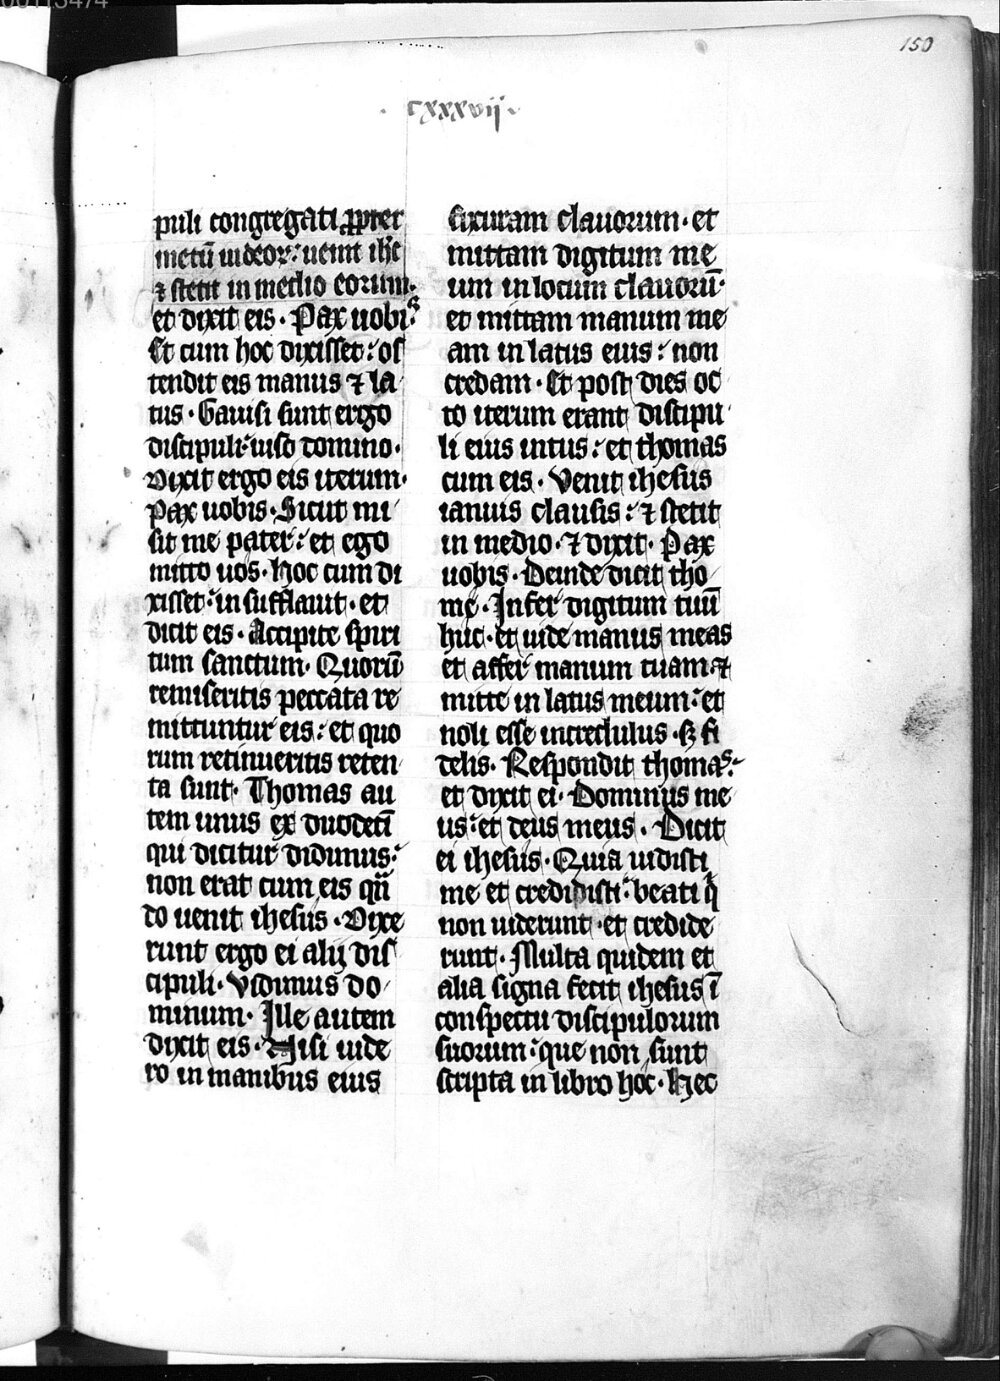 00113474
150
·cxxxvij·
puli congregati ꝓpter
metū iudeor᷒: uenit ihc̄
⁊ stetit in medio eorum·
et dixit eis · Pax uobis
Et cum hoc dixisset: os
tendit eis manus ⁊ la
tus · Gauisi sunt ergo
discipuli: uiso domino·
Dixit ergo eis iterum·
Pax uobis · Sicut mi
sit me pater: et ego
mitto uos · Hoc cum di
xisset: insufflauit · et
dicit eis · Accipite spiri
tum sanctum · Quorū
remiseritis peccata re
mittuntur eis: et quo
rum retinueritis reten
ta sunt · Thomas au
tem unus ex duodecī
qui dicitur didimus:
non erat cum eis qn̄
do uenit ihesus · Dixe
runt ergo ei alij dis
cipuli · Vidimus do
minum · Ille autem
dixit eis · Nisi uide
ro in manibus eius
fixuram clauorum · et
mittam digitum me
um in locum clauorū·
et mittam manum me
am in latus eius: non
credam · Et post dies oc
to iterum erant discipu
li eius intus: et thomas
cum eis · Venit ihesus
ianuis clausis: ⁊ stetit
in medio · ⁊ dixit · Pax
uobis · Deinde dicit tho
me · Infer digitum tuū
huc · et uide manus meas
et affer manum tuam · ⁊
mitte in latus meum: et
noli esse incredulus · sꝫ fi
delis · Respondit thomas:
et dixit ei · Dominus me
us: et deus meus · Dicit
ei ihesus · Quia uidisti
me et credidisti: beati qi
non uiderunt · et credide
runt · Multa quidem et
alia signa fecit ihesus ī
conspectu discipulorum
suorum: que non sunt
scripta in libro hoc · Hec